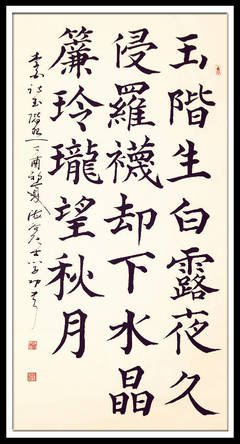 玉階生白露夜久
侵羅襪却下水晶
簾玲瓏望秋月
李白诗玉階怨丁酉初夏